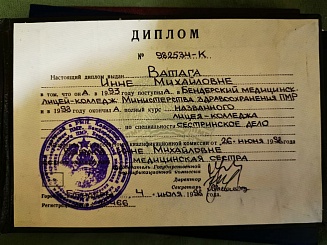 ДИПЛОМ
№ 922534-К
Настоящий диплом выдан Ватага
Инне Михайловне
в том, что он А в 1993 году поступил А в Бендерский медицинск.
лицей-колледж Министерства здравоохранения ПМР
и в 1998 окончил А полный курс названного
лицея-колледжа
по специальности сестринское дело
квалификационной комиссии от 26 июня 1998
Инне Михайловне
медицинская сестра
Председатель Государственной
квалификационной комиссии
Директор
Секретарь
4 июля 1998
Регистрационный